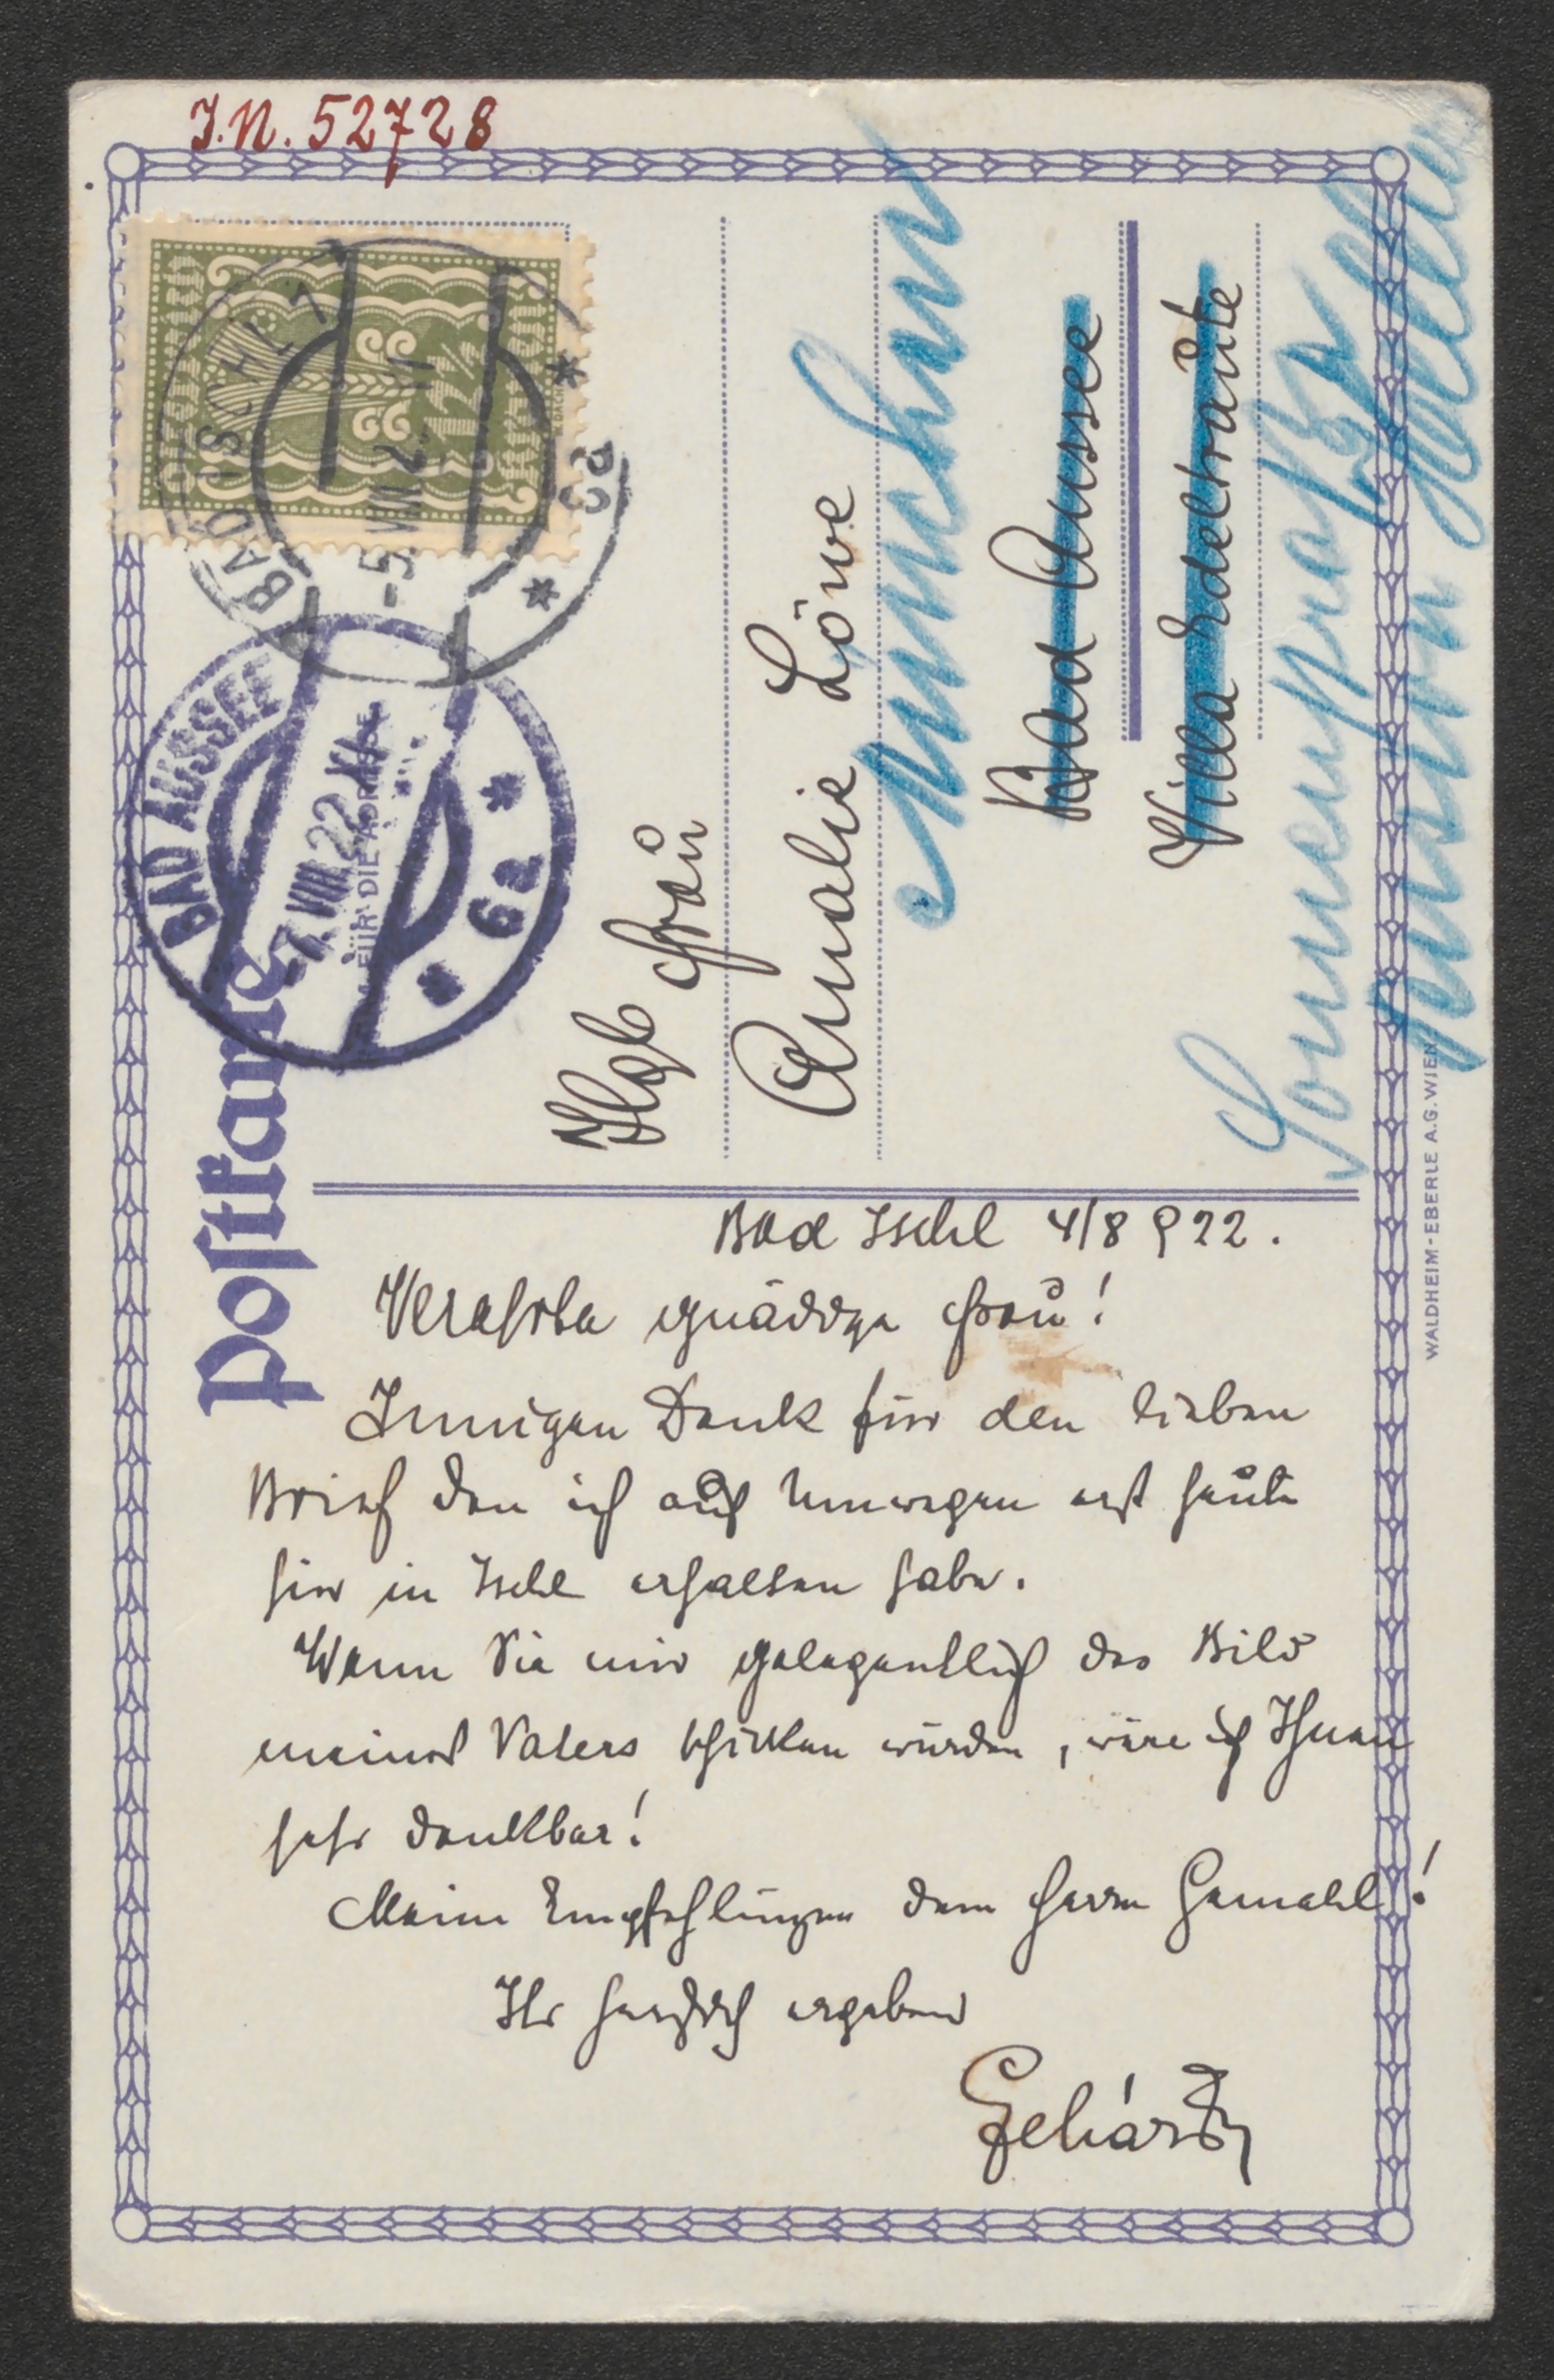 J.N. 52728
Postkarte
FÜR DIE ADRESSE
DEUTSCHÖSTERREICH
12½
Kronen
BAD ISCHL 1
-5.VIII.22
* 6a *
BAD AUSSEE
-7.VIII.22
* 6a *
Frau
Amalie Löwe
München
Bad Aussee
Villa Edeltraute
Pension
WALDHEIM-EBERLE A.G. WIEN
Bad Ischl 4/8 922.
Verehrte gnädige Frau!
Innigen Dank für den lieben
Brief den ich auf Umwegen erst heute
hier in Ischl erhalten habe.
Wenn Sie mir gelegentlich das Bild
meines Vaters schicken würden, wäre ich Ihnen
sehr dankbar!
Meine Empfehlungen dem Herrn Gemahl!
Ihr herzlich ergeben
Lehár Fz